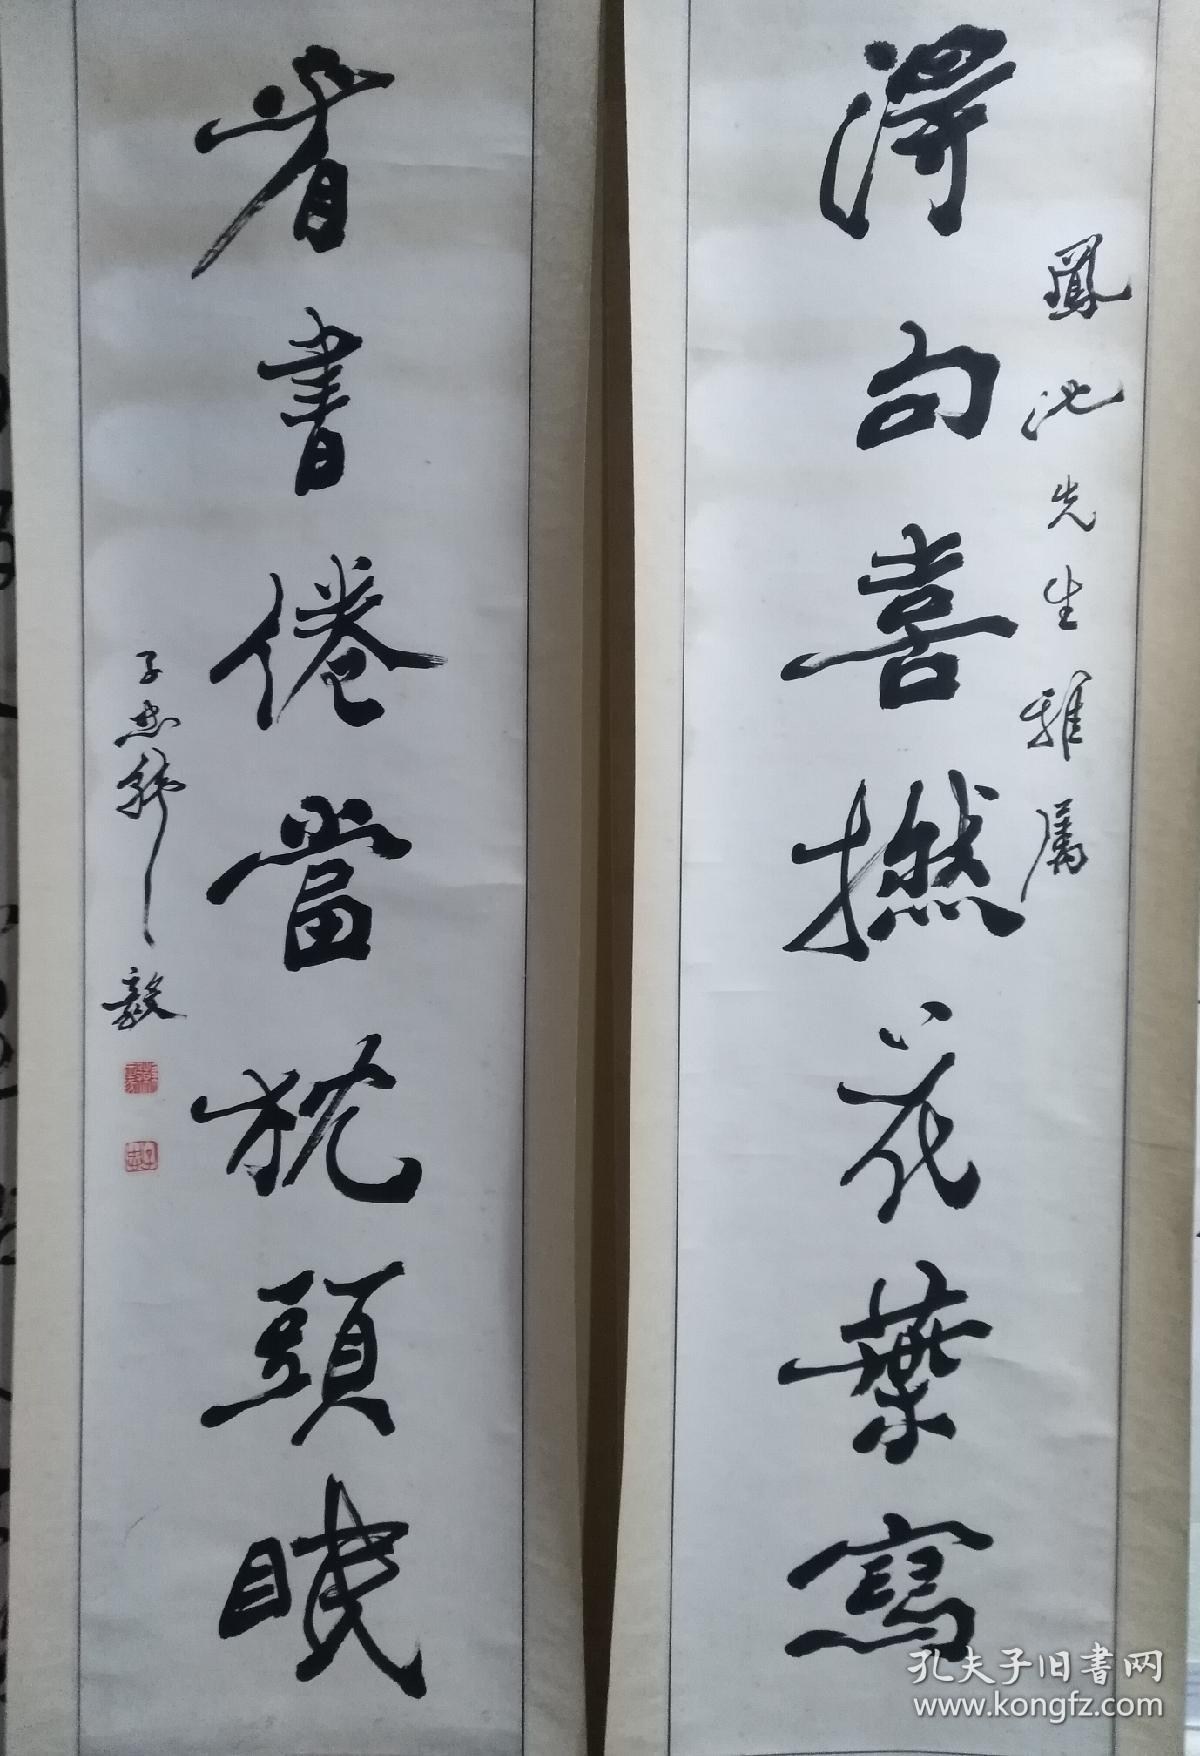 淂句喜撚花葉寫
鳳池先生雅属
看書倦當枕頭眠
子忠韩毅
孔夫子旧書网
www.kongfz.com